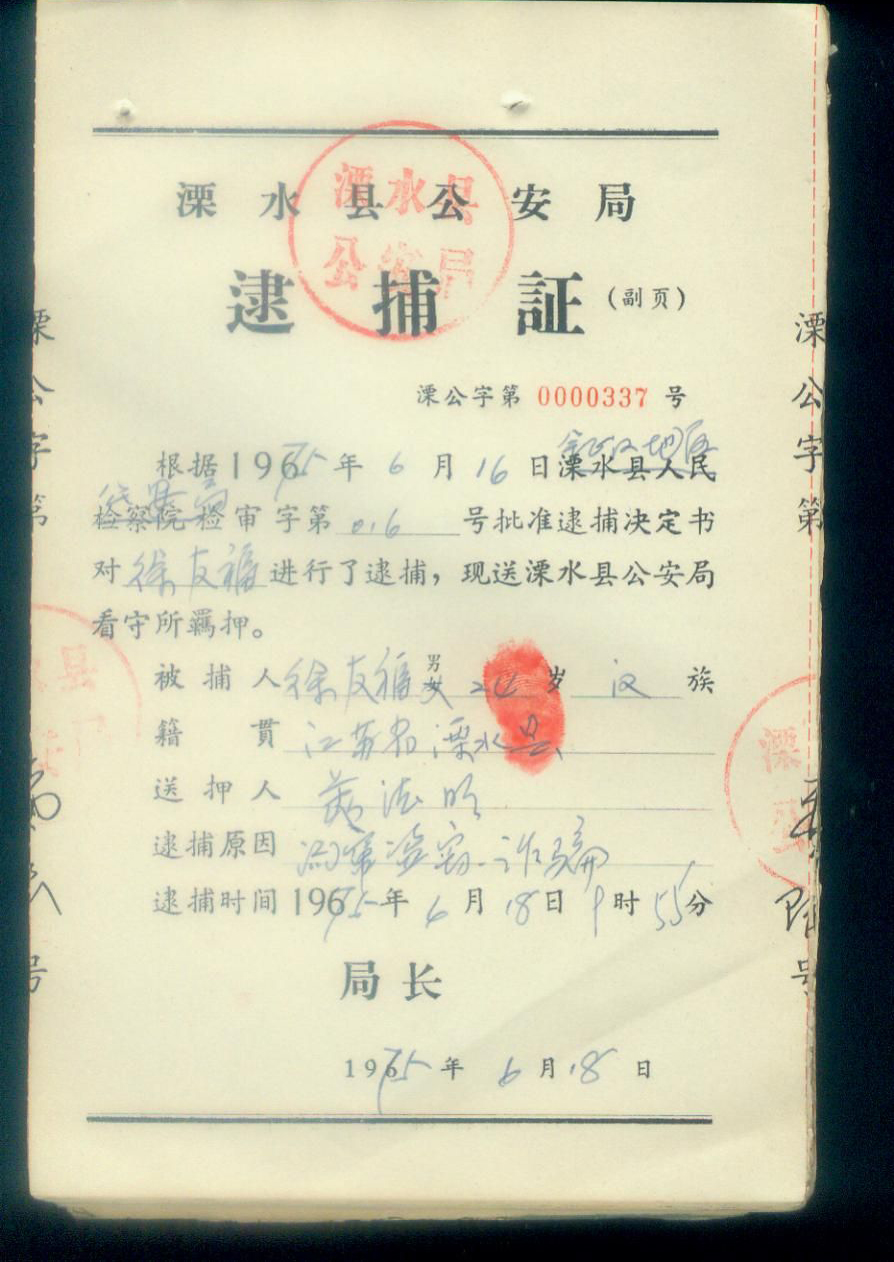 溧水县公安局
溧水县
公安局
逮捕証(副页)
溧公字第 0000337 号
地区
根据1975年6月16日溧水县人民
检察院检审字第016号批准逮捕决定书
对徐友福进行了逮捕，现送溧水县公安局
看守所羁押。
被捕人徐友福男女24岁汉族
籍贯江苏省溧水县
送押人
逮捕原因 盗窃诈骗
逮捕时间1975年6月18日9时55分
局长
1975年6月18日
溧公字第
号
溧公字第
号